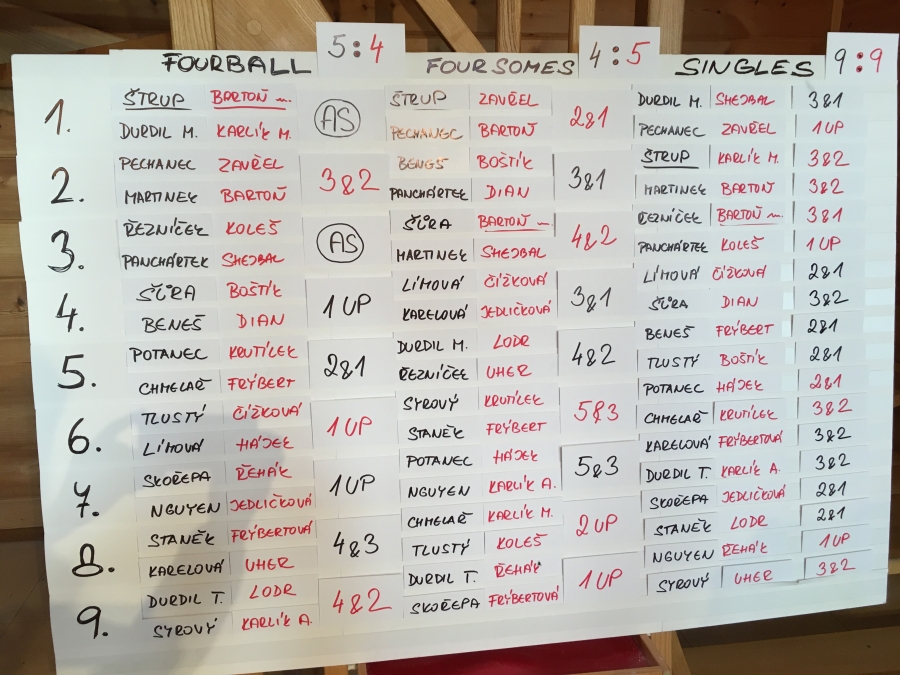 FOURBALL 5:4
1. ŠTRUP BARTOŇ ML. AS
DURDIL M. KARLÍK M.
2. PECHANEC ZAVŘEL 3&2
MARTINEK BARTOŇ
3. ŘEZNÍČEK KOLEŠ AS
PANCHÁRTEK SHEJBAL
4. ŠŮRA BOŠTÍK 1UP
BENEŠ DIAN
5. POTANEC KRUTÍLEK 2&1
CHMELAŘ FRÝBERT
6. TLUSTÝ ČÍŽKOVÁ 1UP
LÍMOVÁ HÁJEK
7. SKOŘEPA ŘEHÁK 1UP
NGUYEN JEDLIČKOVÁ
8. STANĚK FRÝBERTOVÁ 4&3
KARELOVÁ UHER
9. DURDIL T. LODR 4&2
SYROVÝ KARLÍK A.
FOURSOMES 4:5
ŠTRUP ZAVŘEL 2&1
PECHANEC BARTOŇ
BENEŠ BOŠTÍK 3&1
PANCHÁRTEK DIAN
ŠŮRA BARTOŇ ML. 4&2
MARTINEK SHEJBAL
LÍMOVÁ ČÍŽKOVÁ 3&1
KARELOVÁ JEDLIČKOVÁ
DURDIL M. LODR 4&2
ŘEZNÍČEK UHER
SYROVÝ KRUTÍLEK 5&3
STANĚK FRÝBERT
POTANEC HÁJEK 5&3
NGUYEN KARLÍK A.
CHMELAŘ KARLÍK M. 2UP
TLUSTÝ KOLEŠ
DURDIL T. ŘEHÁK 1UP
SKOŘEPA FRÝBERTOVÁ
SINGLES 9:9
DURDIL M. SHEJBAL 3&1
PECHANEC ZAVŘEL 1UP
ŠTRUP KARLÍK M. 3&2
MARTINEK BARTOŇ 3&2
ŘEZNÍČEK BARTOŇ ML. 3&1
PANCHÁRTEK KOLEŠ 1UP
LÍMOVÁ ČÍŽKOVÁ 2&1
ŠŮRA DIAN 3&2
BENEŠ FRÝBERT 2&1
TLUSTÝ BOŠTÍK 2&1
POTANEC HÁJEK 2&1
CHMELAŘ KRUTÍLEK 3&2
KARELOVÁ FRÝBERTOVÁ 3&2
DURDIL T. KARLÍK A. 3&2
SKOŘEPA JEDLIČKOVÁ 2&1
STANĚK LODR 2&1
NGUYEN ŘEHÁK 1UP
SYROVÝ UHER 3&2